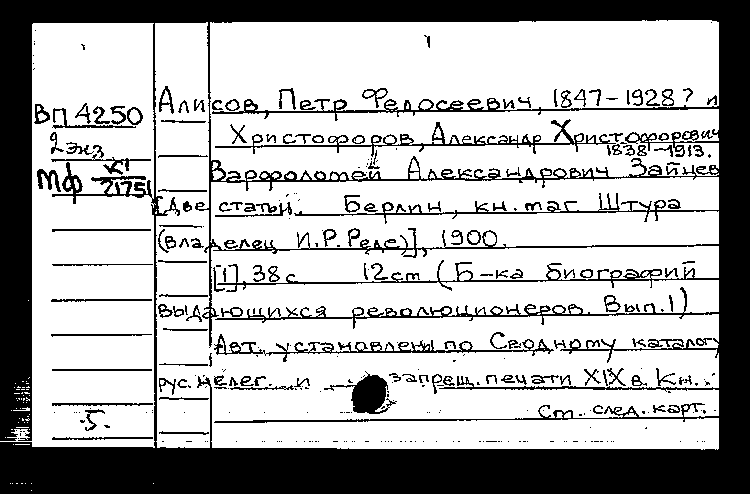 Алисов, Петр Федосеевич, 1847-1928? и
Христофоров, Александр Христофорович
1838-1913.
Варфоломей Александрович Зайцев
[Две статьи. Берлин, кн. маг. Штура
(владелец И.Р.Реде)], 1900.
[1], 38 с 12 см (Б-ка биографий
выдающихся революционеров. Вып.1)
Авт. установлены по Сводному каталогу
рус. нелег. и запрещ. печати XIX в. Кн.:
См. след. карт.
ВП 4250
2 экз
Мф К1
21751
.5.